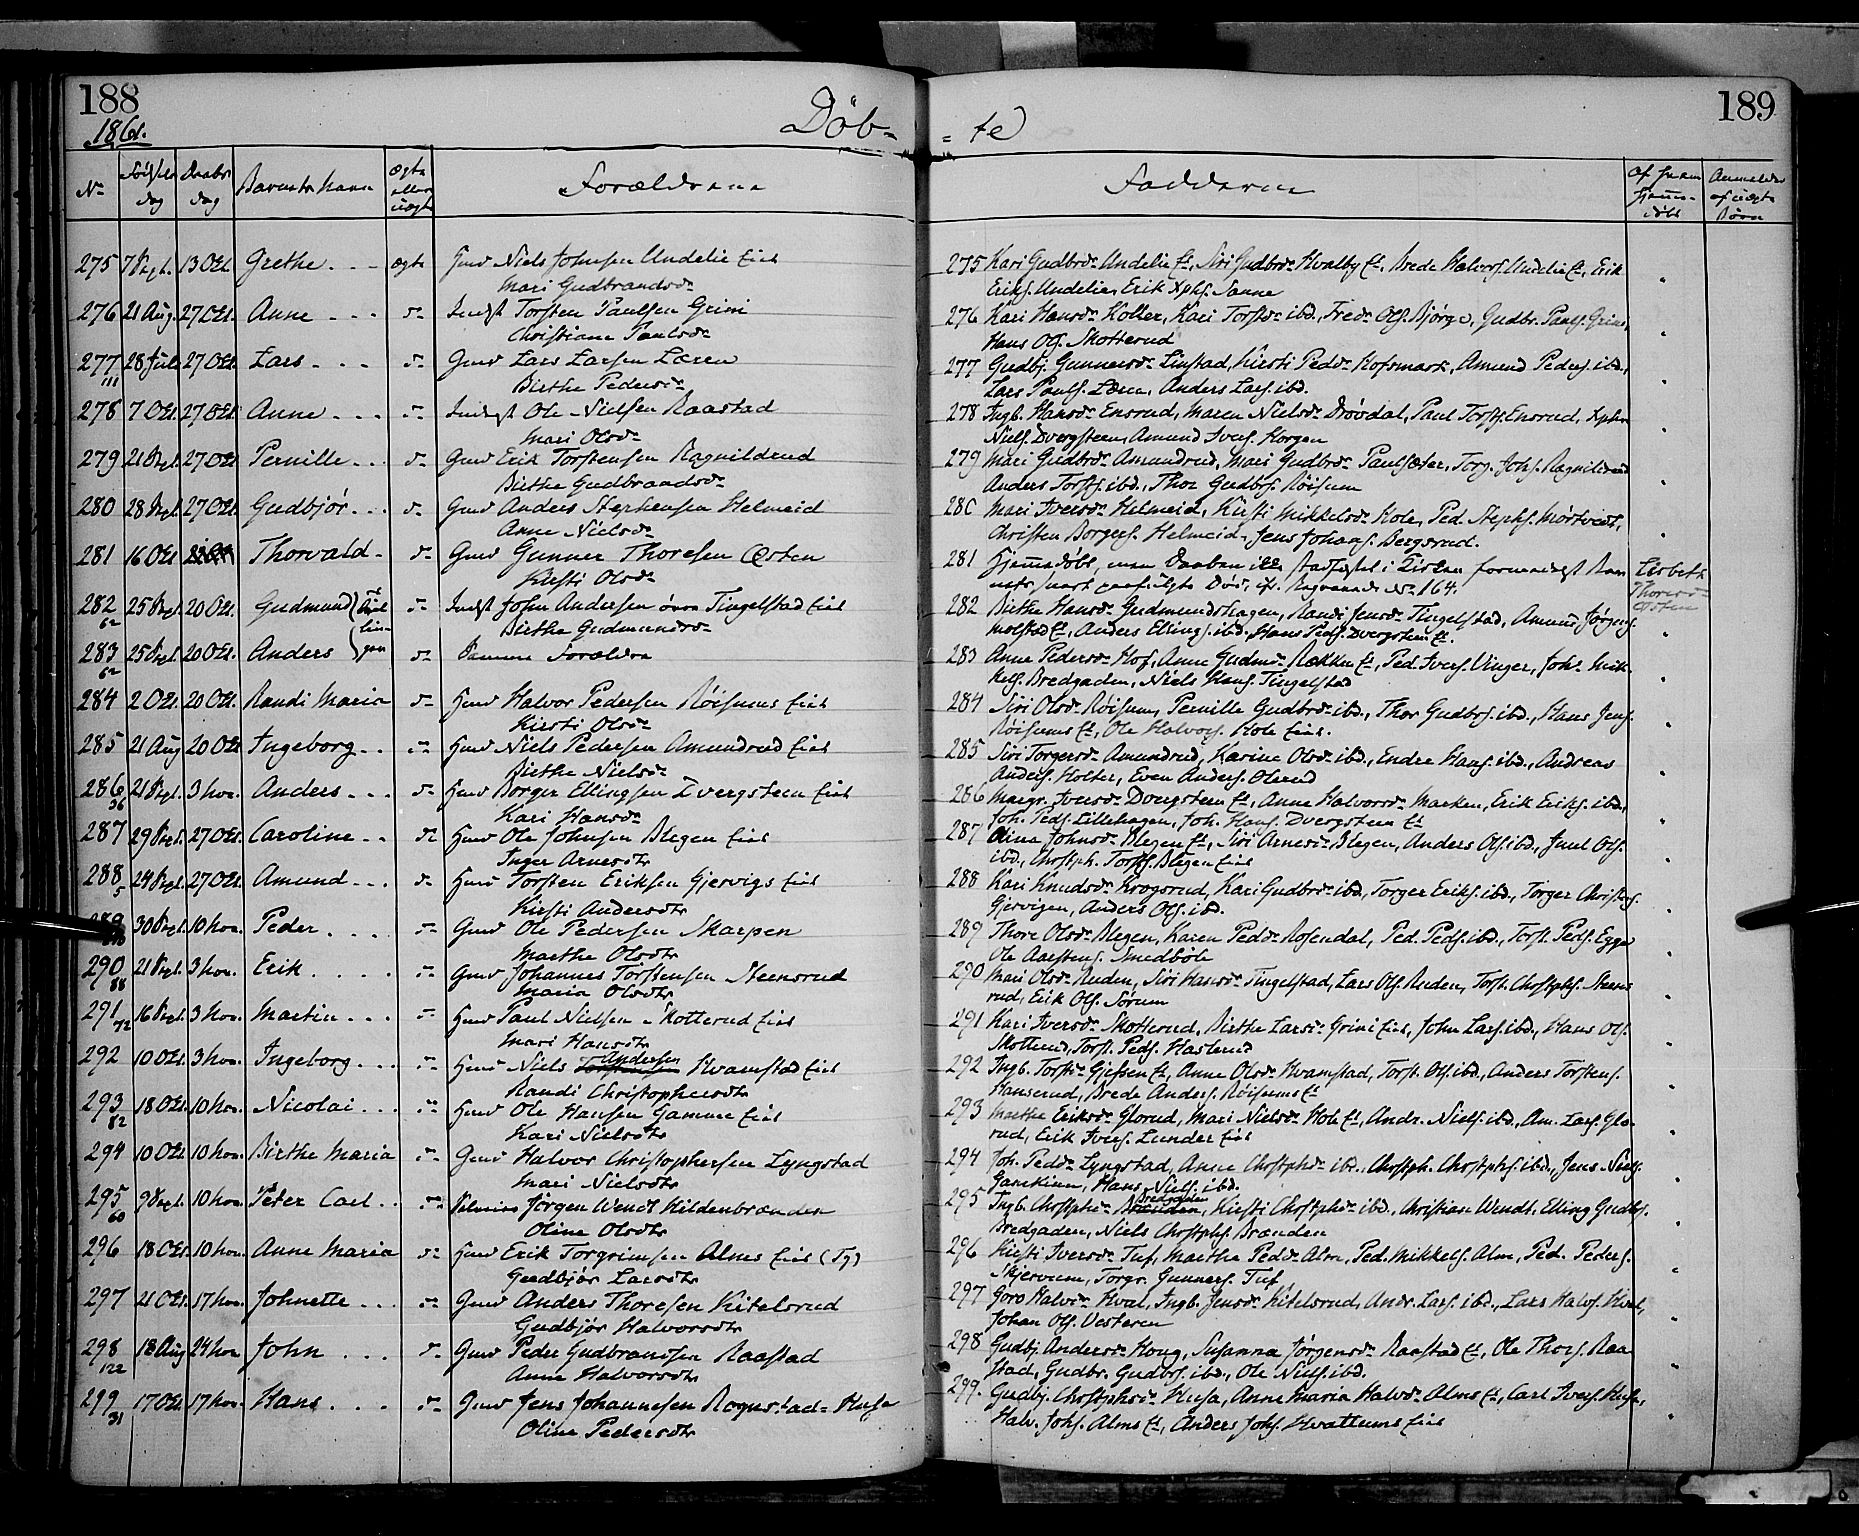 188
1861.
Døb-
No Fødsels dag Daabs dag Barnets Navn Ægte eller uægte Forældrene
275 7 Sept. 13 Oct. Grethe ægte Gmd Niels Johnsen Undelie Eiet
Mari Gudbrandsdr
276 21 Aug. 27 Oct. Anne do Indst Torsten Paulsen Grini
Christiane Paulsdr
277 28 Juli 27 Oct. Lars do Gmd Lars Larsen Læren
111 Birthe Pedersdr
278 7 Oct. 27 Oct. Anne do Indst Ole Nielsen Raastad
Mari Olsdr
279 21 Sept. 27 Oct. Pernille do Gmd Erik Torstensen Ragnildrud
Birthe Gudbrandsdr
280 28 Sept. 27 Oct. Gudbjør do Gmd Anders Stephensen Helmeid
Anne Nielsdr
281 16 Oct. Thorvald do Gmd Gunner Thoresen Østen
Kirsti Olsdr
282 25 Sept. 20 Oct. Gudmund do Indst John Andersen øvre Tingelstad Eiet
62 Birthe Gudmundsdr
283 25 Sept. 20 Oct. Anders do Samme Forældre
62
284 2 Oct. 20 Oct. Randi Maria do Hmd Halvor Pedersen Røisums Eiet
Kirsti Olsdr
285 21 Aug 20 Oct Ingeborg do Hmd Niels Pedersen Amundrud Eiet
Birthe Nielsdr
286 21 Sept. 3 Nov. Anders do Hmd Borger Ellingsen Dvergsteen Eiet
36 Kari Hansdr
287 29 Sept. 27 Oct. Caroline do Hmd Ole Johnsen Blegen Eiet
Inger Arnesdtr
288 24 Sept. 27 Oct. Amund do Hmd Torsten Eriksen Gjervigs Eiet
5 Kirsti Andersdtr
289 30 Sept. 10 Nov. Peder do Gmd Ole Pedersen Skarpen
Marthe Olsdtr
290 21 Sept. 3 Nov. Erik do Gmd Johannes Torstensen Steensrud
88 Maria Olsdtr
291 16 Sept. 3 Nov. Martin do Hmd Paul Nielsen Skotterud Eiet
72 Mari Hansdtr
292 10 Oct. 3 Nov. Ingeborg do Hmd Niels Torstensen Andersen Kvamstad Eiet
Randi Christophersdtr
293 18 Oct. 10 Nov. Nicolai do Hmd Ole Hansen Gamme Eiet
82 Kari Nielsdtr
294 10 Oct. 10 Nov. Birthe Maria do Gmd Halvor Christophersen Lyngstad
Mari Nielsdtr
295 9 Sept. 10 Nov. Peter Carl do Jørgen Wendt Kildenbrænden
60 Oline Olsdtr
296 18 Oct. 10 Nov. Anne Maria do Hmd Erik Torgrimsen Alms Eiet (Tf)
Gudbjør Larsdtr
297 21 Oct. 17 Nov. Johnette do Gmd Anders Thoresen Kitelsrud
Gudbjør Halvorsdtr
298 18 Aug 24 Nov John do Gmd Peder Gudbrandsen Raastad
122 Anne Halvorsdtr
299 17 Oct 17 Nov. Hans do Gmd Jens Johannesen Rognstad-Husa
31 Oline Pedersdtr
189
-te
Fadderne Af hvem hjemmedøbt Anmelder af uægte Børn
275 Kari Gudbrdr Undelie Et, Siri Gudbrdr Hvalby Et, Brede Halvors. Undelie Et, Erik
Eriks. Undelie, Erik Xphs. Sanne
276 Kari Hansdr Koller, Kari Torstdr ibd, Fredr Ols. Bjørge, Gudbr. Pauls. Grini,
Hans Ols. Skotterud
277 Gudbj. Gunnersdr Linstad, Kirsti Pedsdr Hofsmark, Amund Peders. ibd.,
Lars Pauls. Læren, Anders Lars. ibd.
278 Ingb. Hansdr Ensrud, Maren Nielsdr Drøvdal, Paul Torsts. Ensrud, Xpher
Niels. Dvergsteen, Amund Ivers. Horgen
279 Mari Gudbrdr Amundrud, Mari Gudbrdr Paulsæter, Torg. Johs. Ragnildrud
Anders Torsts. ibd., Thor Gudbrs. Røisum
280 Mari Iversdr Helmeid, Kirsti Mikkelsdr Hole, Ped. Stephs. Mørtvedt,
Christen Borgers. Helmeid, Jens Johans. Bergsrud.
281 Hjemmedøbt, men Daaben ikke stadfæstet i Kirken formedelst Bar- Lisbeth
nets snart paafulgte Død, cfr. Begravede No 164. Thoresdr
Østen
282 Birthe Hansdr Gudmundshagen, Randi Jensdr Tingelstad, Amund Jørgens.
Molstad Et, Anders Ellings. ibd., Hans Peds. Dvergsteen Et.
283 Anne Pedersdr Hof, Anne Gudmdr Rækken Et, Ped. Ivers. Vinger, Johs Mik-
kels. Bredgaden, Niels Hans. Tingelstad
284 Siri Olsdr Røisum, Pernille Gudbrdr ibd., Thor Gudbrs. ibd., Hans Jens.
Røisums Et, Ole Halvors. Hole Eiet.
285 Siri Torgersdr Amundrud, Karine Olsdr ibd., Endre Haags. ibd., Andreas
Anders. Holter, Even Anders. Olerud
286 Margr. Iversdr Dvergsteen Et, Anne Halvorsdr Marken, Erik Eriks. ibd.,
Joh. Peds. Lillehagen, Joh. Hans. Dvergsteen Et
287 Olina Johnsdr Blegen Et, Siri Arnesdr Blegen, Anders Ols. ibd., Juul Ols.
ibd., Christph. Torsts. Blegen Eiet
288 Kari Knudsdr Krogsrud, Kari Gudbrdr ibd., Torger Eriks. ibd., Torger Christens.
Gjervigen, Anders Ols. ibd.
289 Thore Olsdr Blegen, Karen Pedsdr Rosendal, Ped. Peds. ibd., Torst. Peds. Egge
Ole Aarstens. Smedbøle
290 Mari Olsdr Ruden, Siri Hansdr Tingelstad, Lars Ols. Ruden, Torst. Chrstphs. Steens-
rud, Erik Ols. Sørum
291 Kari Iversdr Skotterud, Birthe Larsdr Grini Eiet, John Lars. ibd., Hans Ols.
Skotterud, Torst. Peds. Haslerud
292 Ingb. Torstdr Gjefsen Et, Anne Olsdr Kvamstad, Torst. Ols. ibd., Anders Torstens.
Hanserud, Brede Anders. Røisums Et
293 Marthe Eriksdr Glorud, Mari Nielsdr Hole Et, Andr. Niels. ibd., Am. Lars. Glo-
rud, Erik Ivers. Lunder Eiet
294 Joh. Pedsdr Lyngstad, Anne Chrstphdr ibd., Chrstph. Chrstphs. ibd., Jens Niels.
Gamkinn, Hans Niels. ibd.
295 Ingb. Chrstphdr Brænden Bredgaden, Kirsti Chrstphdr ibd., Christian Wendt, Elling Gudbs.
Bredgaden, Niels Chrstphs. Brænden
296 Kirsti Iversdr Tuf, Marthe Pedsdr Alm, Ped. Mikkels. Alm, Ped. Peders.
Skjervum, Torgr. Gunners. Tuf
297 Goro Halvsdr Hval, Ingb. Jensdr Kitelsrud, Andr. Lars. ibd., Lars Halvs. Hval,
Johan Ols. Vesteren
298 Gudbj. Andersdr Houg, Susanna Jørgensdr Raastad Et, Ole Thors. Raa-
stad, Gudbr. Gudbrs. ibd., Ole Niels. ibd.
299 Gudbj. Chrstphdr Husa, Anne Maria Halvdr Alms Et, Carl Ivers. Husa,
Halv. Johs. Alms Et, Anders Johs. Hvattums Eiet